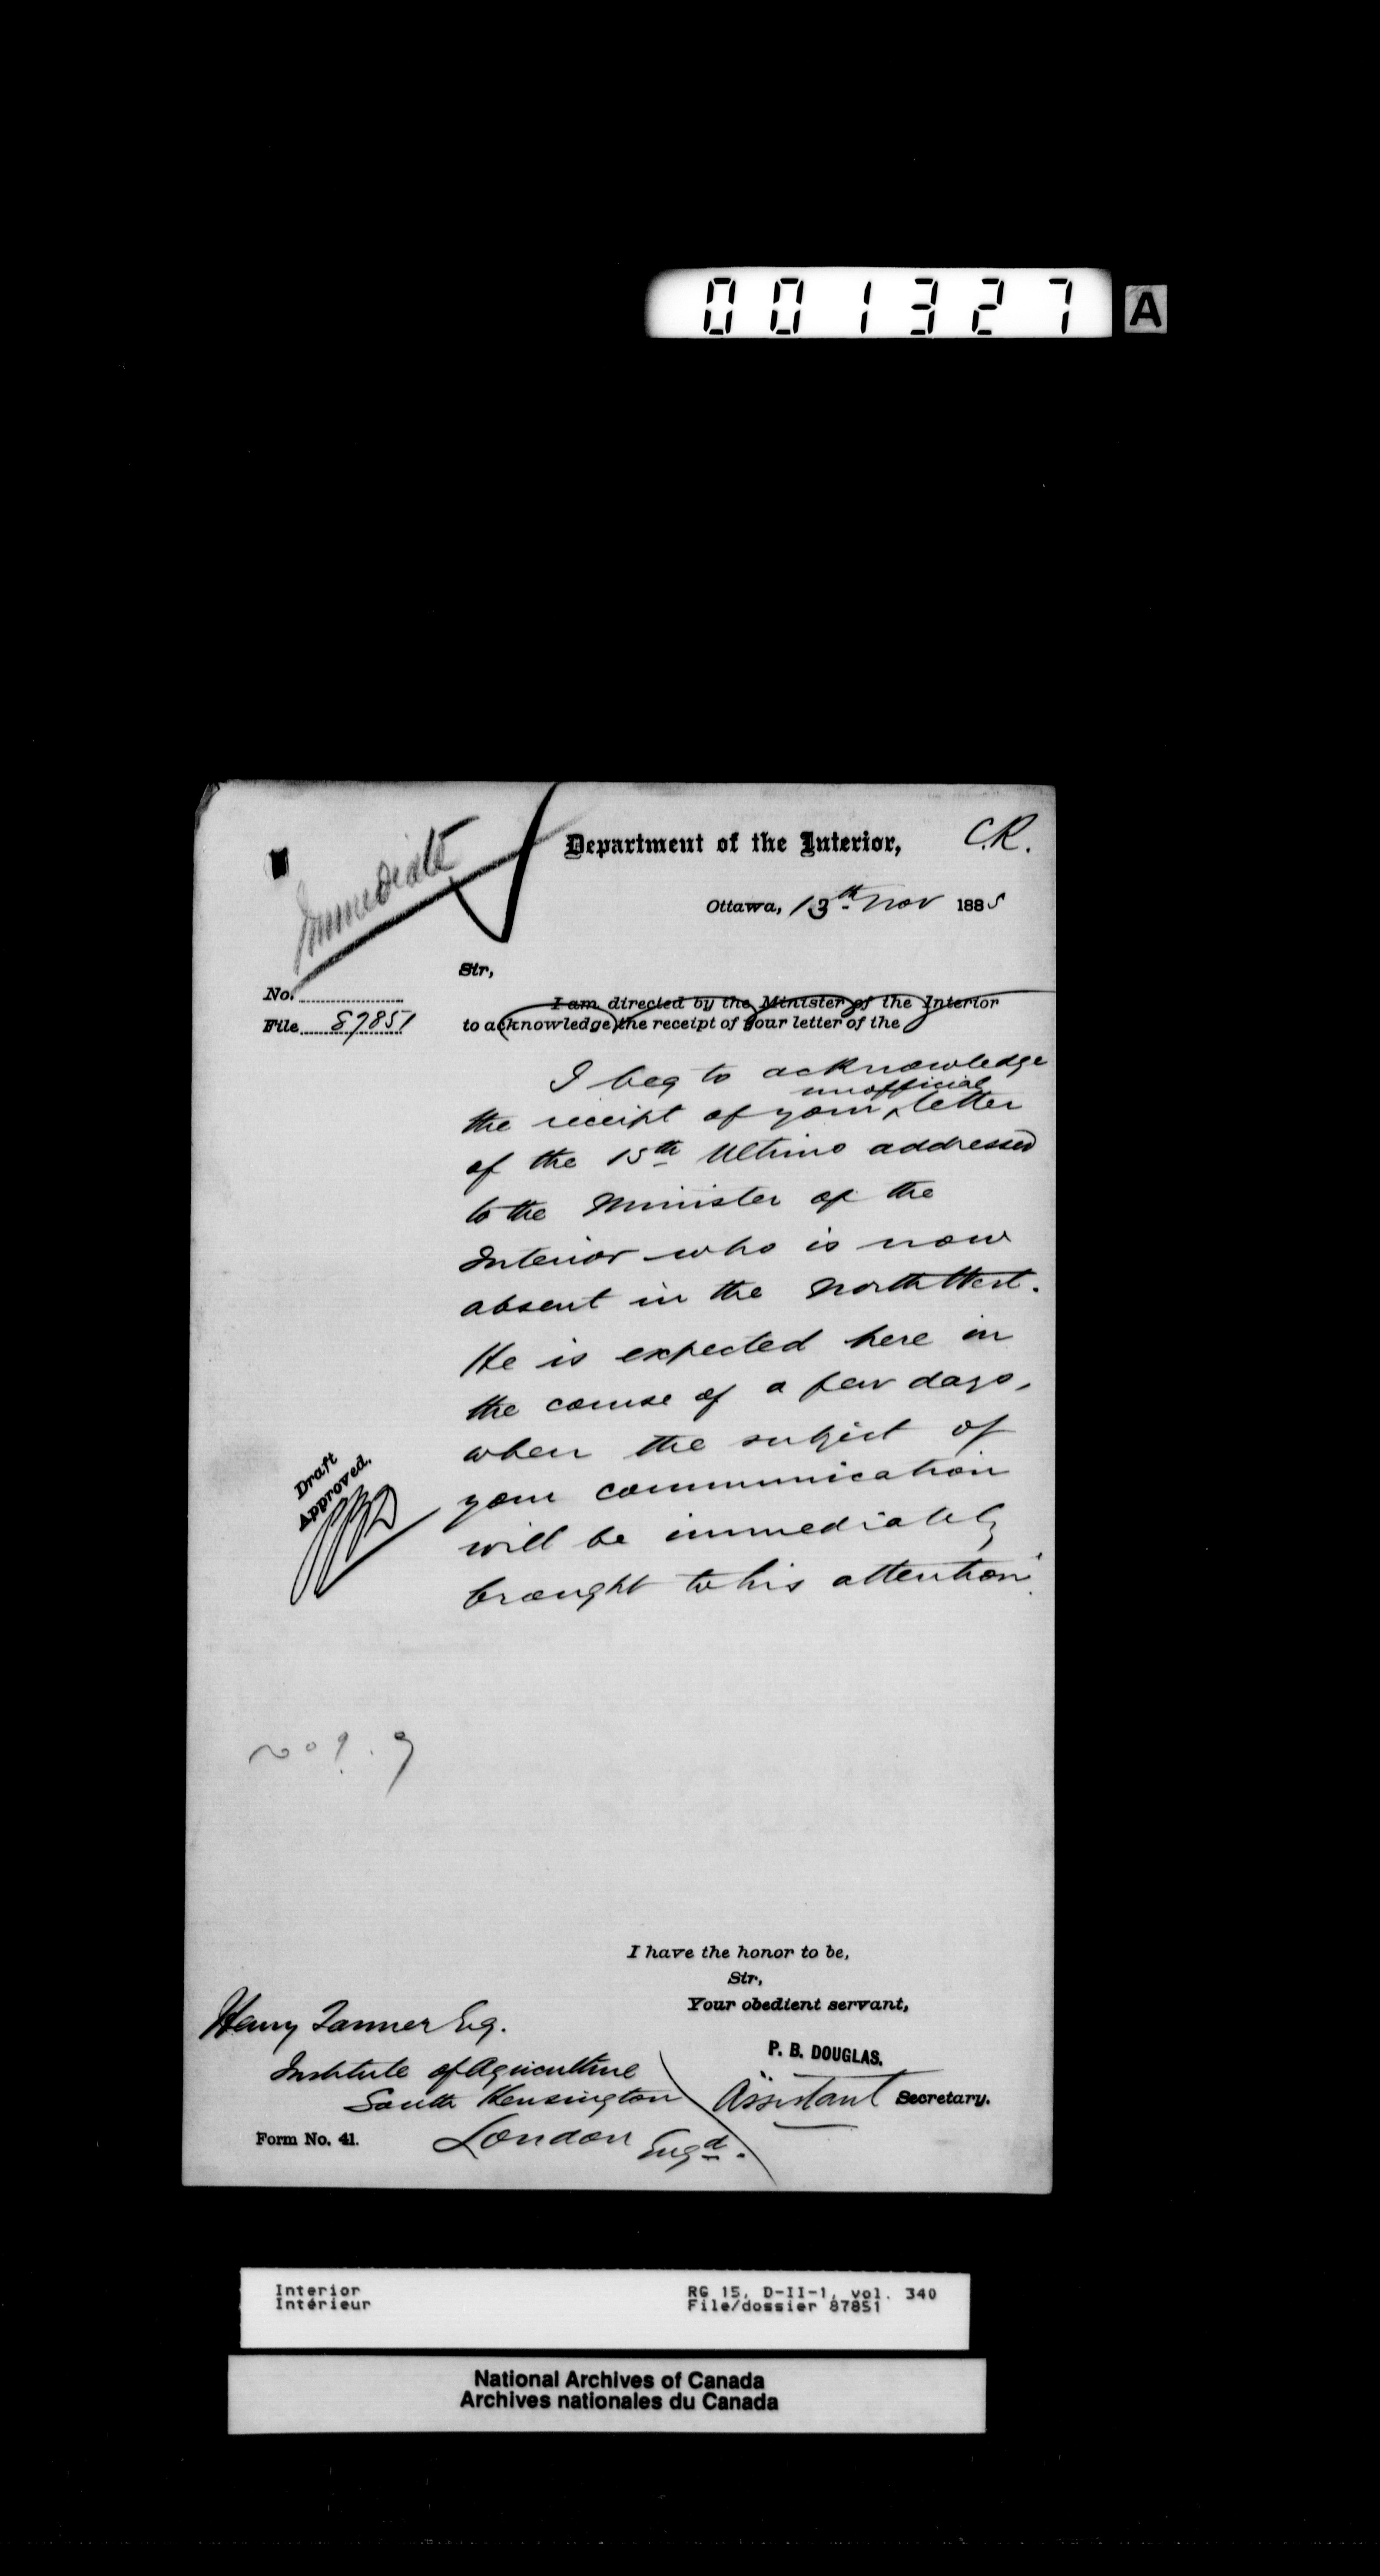 001327 A
Department of the Interior,
C.R.
Immediate
Ottawa, 13th Nov 1885
Sir,
No.
File 87851
I am directed by the Minister of the Interior
to acknowledge the receipt of your letter of the
I beg to acknowledge
unofficial
the receipt of your ^ letter
of the 15th Ultimo addressed
to the Minister of the
Interior who is now
absent in the North West.
He is expected here in
the course of a few days,
when the subject of
your communication
will be immediately
brought to his attention.
Draft
Approved.
I have the honor to be,
Sir,
Your obedient servant,
P. B. DOUGLAS.
Assistant Secretary.
Henry Tanner Esq.
Institute of Agriculture
South Kensington
London Engd.
Form No. 41.
Interior RG 15, D-II-1, vol. 340
Intérieur File/dossier 87851
National Archives of Canada
Archives nationales du Canada